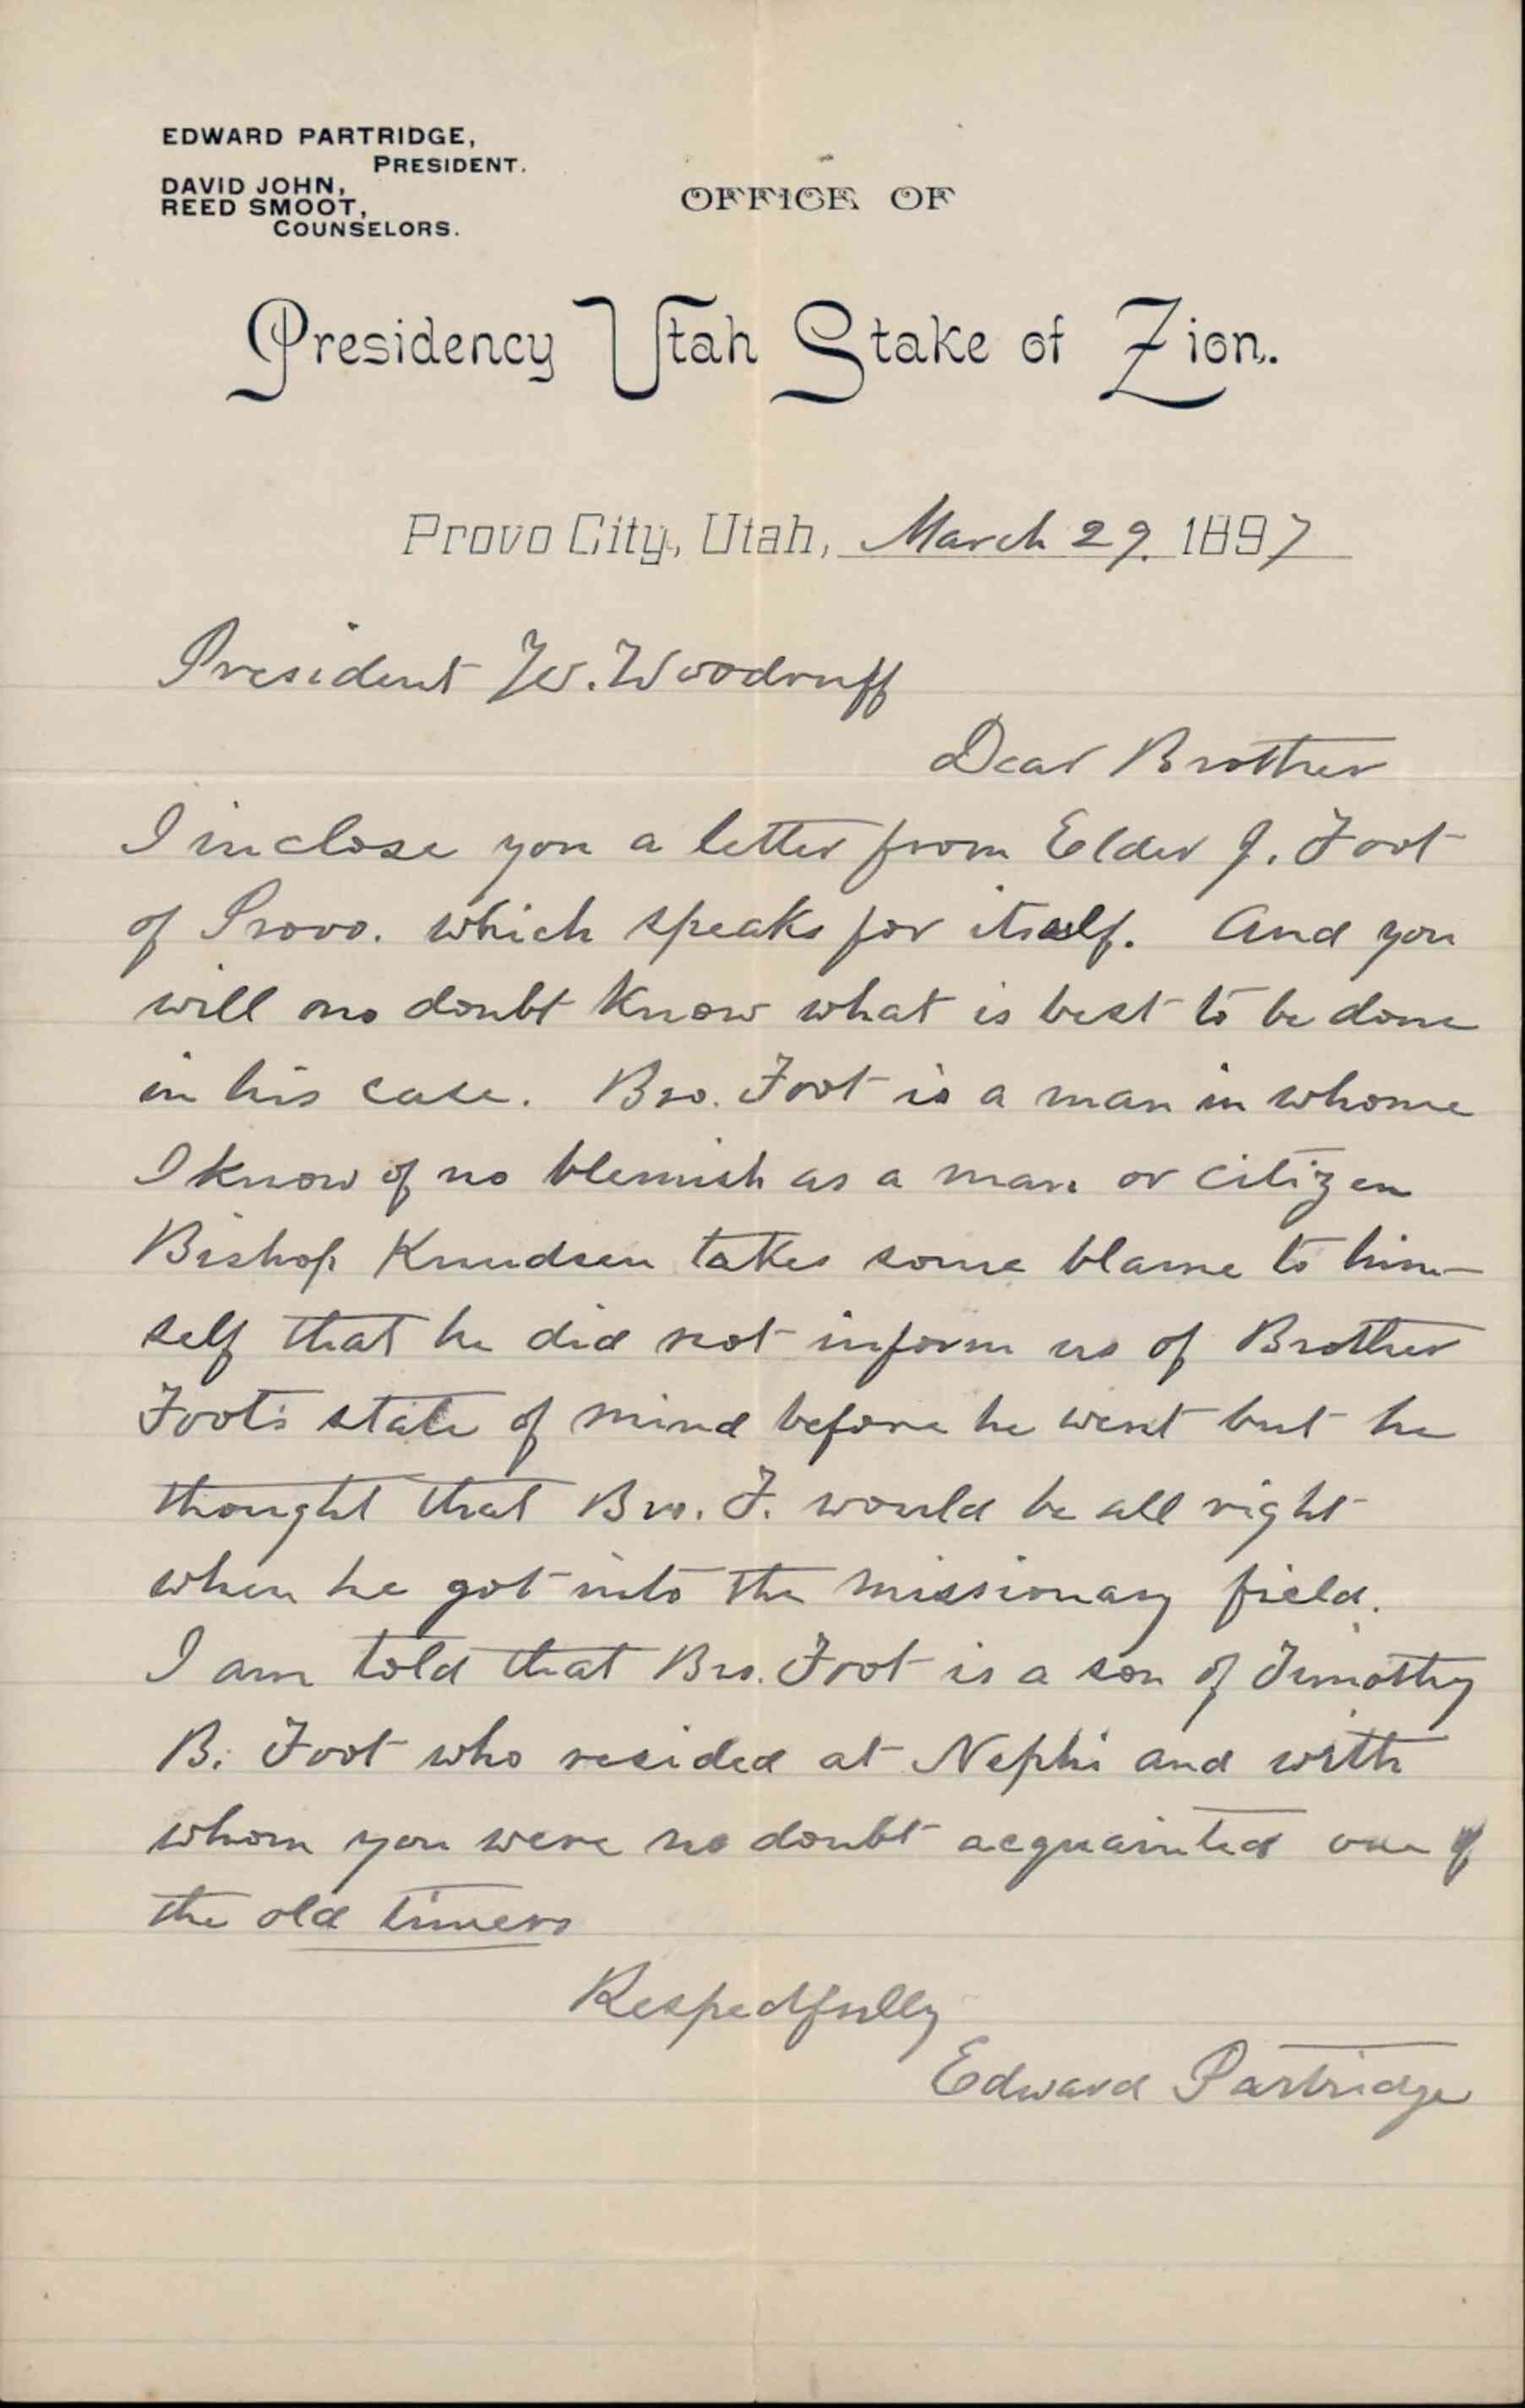 EDWARD PARTRIDGE,
PRESIDENT.
DAVID JOHN,
REED SMOOT,
COUNSELORS.
OFFICE OF
Presidency Utah Stake of Zion.
Provo City, Utah, March 29. 1897
President W. Woodruff
Dear Brother
I inclose you a letter from Elder J. Foot
of Provo. which speaks for itself. And you
will no doubt know what is best to be done
in his case. Bro. Foot is a man in whome
I know of no blemish as a man or citizen
Bishop Knudsen takes some blame to him-
self that he did not inform us of Brother
Foot's state of mind before he went but he
thought that Bro. F. would be all right
when he got into the missionary field.
I am told that Bro. Foot is a son of Timothy
B. Foot who resided at Nephi and with
whom you were no doubt acquainted one of
the old timers
Respectfully
Edward Partridge